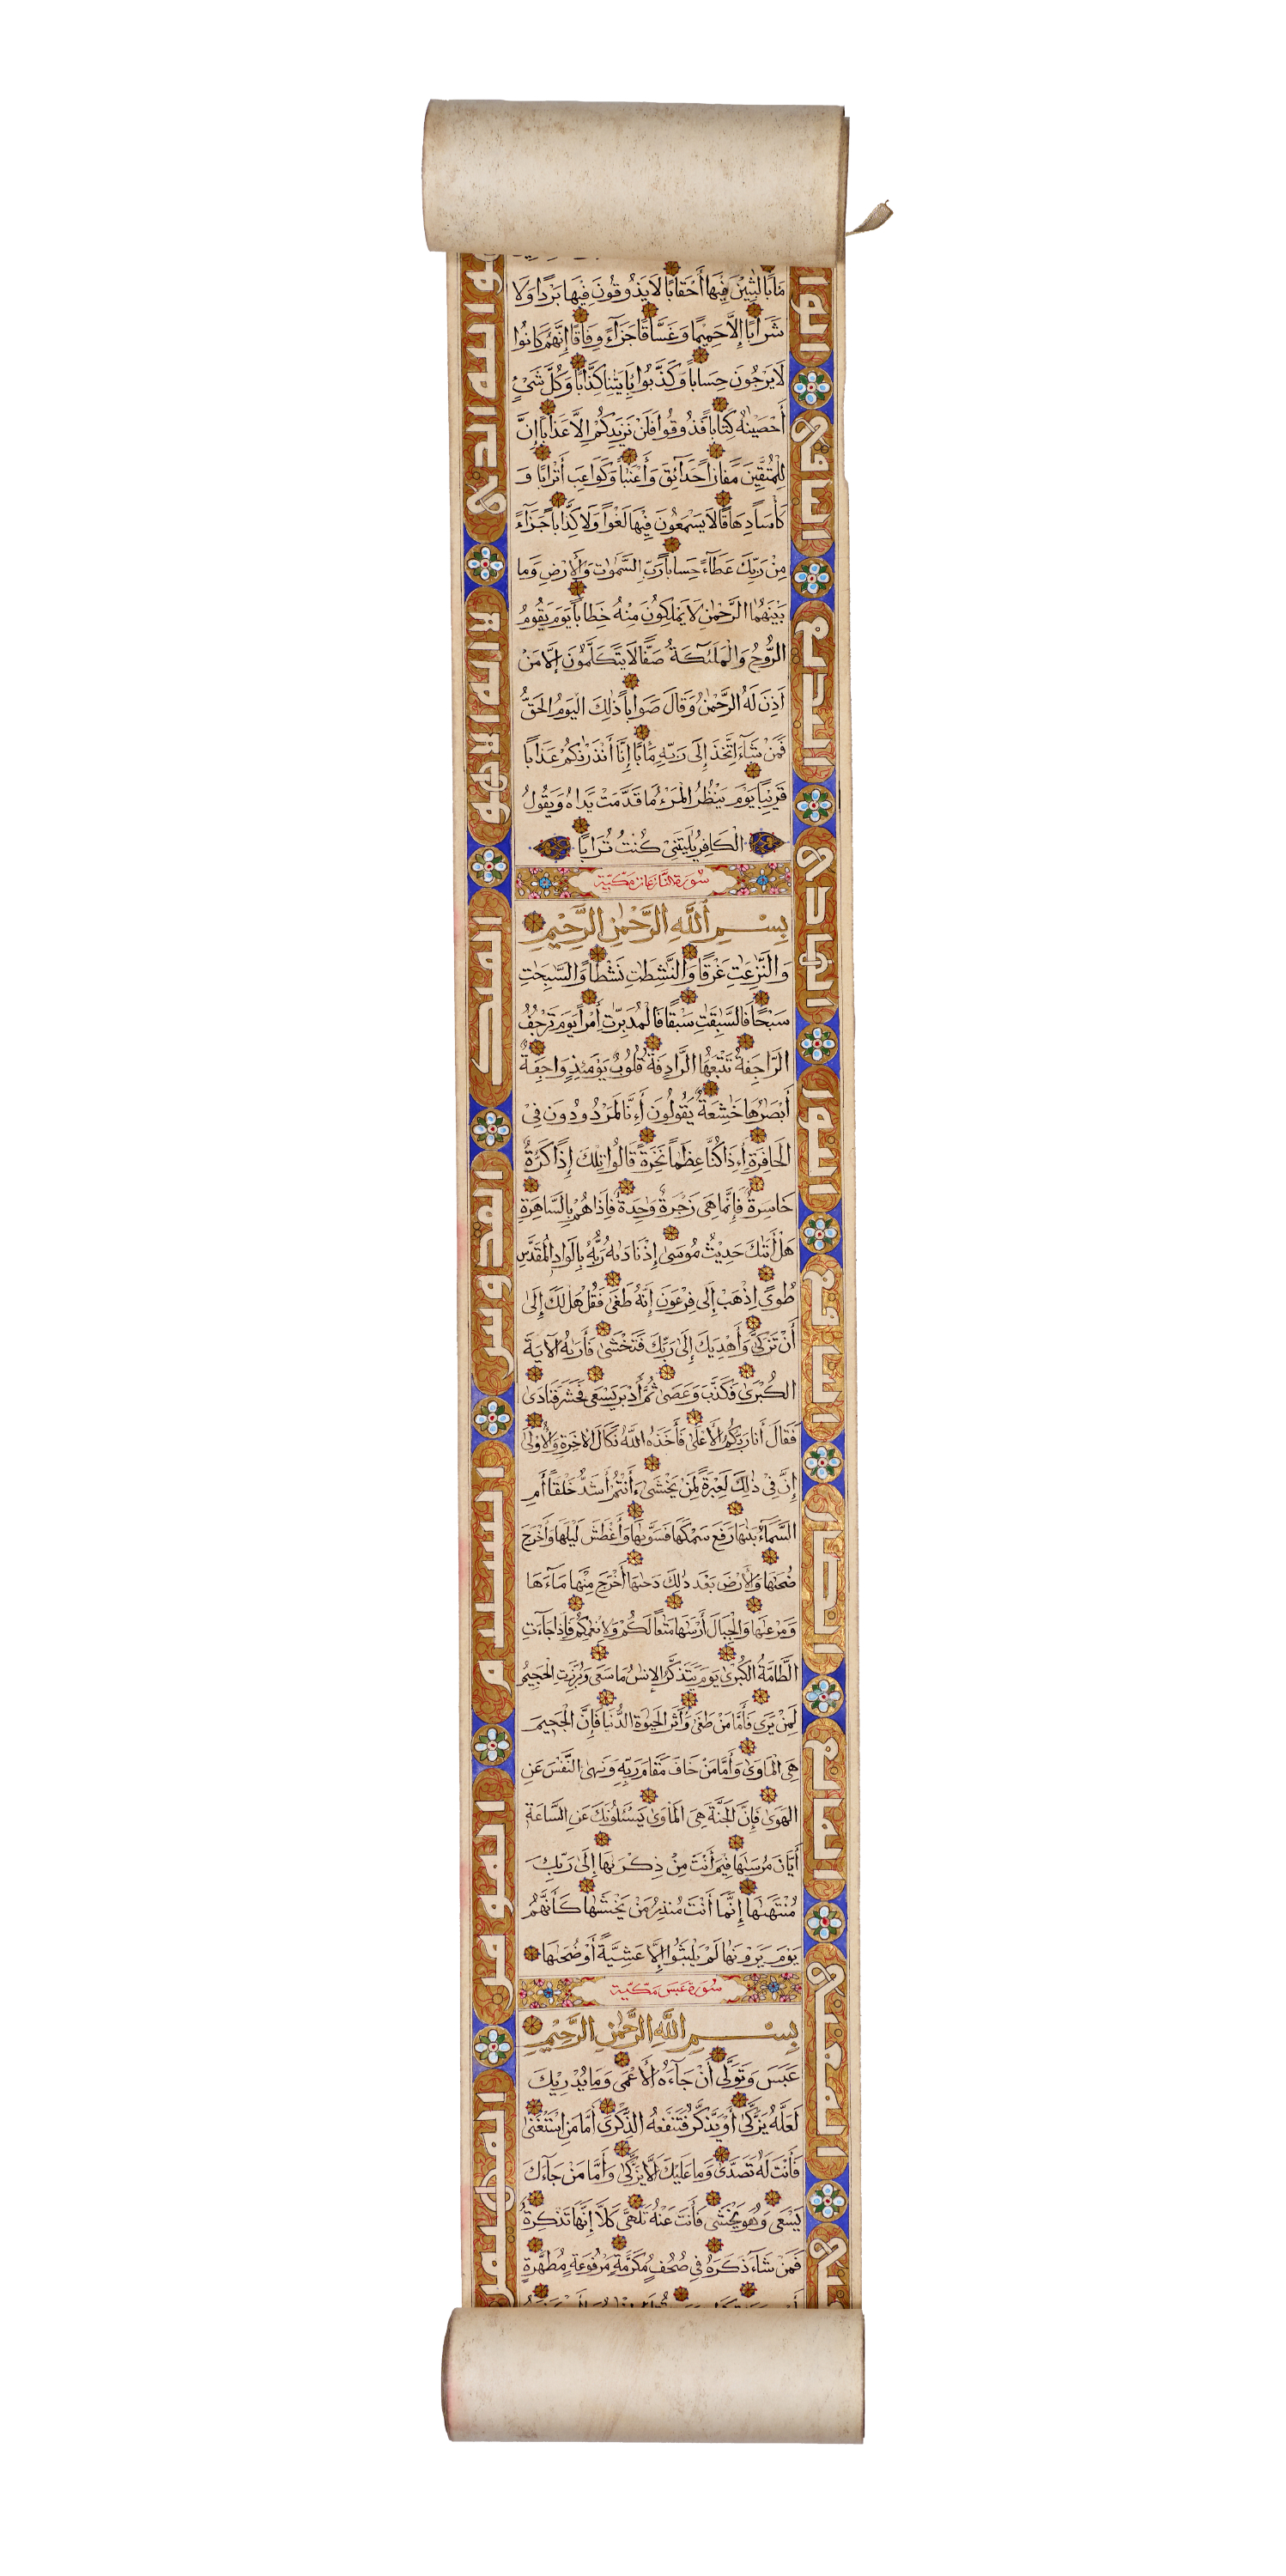 مَاٰبًا لٰبِثِيْنَ فِيْهَا أَحْقَابًا لَا يَذُوقُونَ فِيْهَا بَرْدًا وَلَا
شَرَابًا إِلَّا حَمِيْمًا وَغَسَّاقًا جَزَآءً وِفَاقًا إِنَّهُمْ كَانُوا
لَا يَرْجُونَ حِسَابًا وَكَذَّبُوا بِاٰيٰتِنَا كِذَّابًا وَكُلَّ شَيْءٍ
أَحْصَيْنٰهُ كِتَابًا فَذُوقُوا فَلَنْ نَزِيْدَكُمْ إِلَّا عَذَابًا إِنَّ
لِلْمُتَّقِيْنَ مَفَازًا حَدَآئِقَ وَأَعْنٰبًا وَكَوَاعِبَ أَتْرَابًا وَ
كَأْسًا دِهَاقًا لَا يَسْمَعُونَ فِيْهَا لَغْوًا وَلَا كِذَّابًا جَزَآءً
مِنْ رَبِّكَ عَطَآءً حِسَابًا رَبِّ السَّمٰوٰتِ وَالْأَرْضِ وَمَا
بَيْنَهُمَا الرَّحْمٰنِ لَا يَمْلِكُونَ مِنْهُ خِطَابًا يَوْمَ يَقُومُ
الرُّوحُ وَالْمَلٰئِكَةُ صَفًّا لَا يَتَكَلَّمُونَ إِلَّا مَنْ
أَذِنَ لَهُ الرَّحْمٰنُ وَقَالَ صَوَابًا ذٰلِكَ الْيَوْمُ الْحَقُّ
فَمَنْ شَآءَ اتَّخَذَ إِلَى رَبِّهِ مَاٰبًا إِنَّا أَنْذَرْنٰكُمْ عَذَابًا
قَرِيْبًا يَوْمَ يَنْظُرُ الْمَرْءُ مَا قَدَّمَتْ يَدَاهُ وَيَقُولُ
الْكَافِرُ يٰلَيْتَنِيْ كُنْتُ تُرَابًا
سُورَةُ النَّازِعَات مَكِّيَّة
بِسْمِ اللَّهِ الرَّحْمٰنِ الرَّحِيْمِ
وَالنّٰزِعٰتِ غَرْقًا وَالنّٰشِطٰتِ نَشْطًا وَالسّٰبِحٰتِ
سَبْحًا فَالسّٰبِقٰتِ سَبْقًا فَالْمُدَبِّرٰتِ أَمْرًا يَوْمَ تَرْجُفُ
الرَّاجِفَةُ تَتْبَعُهَا الرَّادِفَةُ قُلُوبٌ يَوْمَئِذٍ وَاجِفَةٌ
أَبْصَارُهَا خٰشِعَةٌ يَقُولُونَ أَءِنَّا لَمَرْدُودُونَ فِيْ
الْحَافِرَةِ أَءِذَا كُنَّا عِظٰمًا نَخِرَةً قَالُوا تِلْكَ إِذًا كَرَّةٌ
خَاسِرَةٌ فَإِنَّمَا هِيَ زَجْرَةٌ وٰحِدَةٌ فَإِذَا هُمْ بِالسَّاهِرَةِ
هَلْ أَتٰكَ حَدِيْثُ مُوسٰى إِذْ نَادٰىهُ رَبُّهُ بِالْوَادِ الْمُقَدَّسِ
طُوًى اِذْهَبْ إِلَى فِرْعَوْنَ إِنَّهُ طَغٰى فَقُلْ هَلْ لَكَ إِلَى
أَنْ تَزَكّٰى وَأَهْدِيَكَ إِلَى رَبِّكَ فَتَخْشٰى فَأَرٰىهُ الْاٰيَةَ
الْكُبْرٰى فَكَذَّبَ وَعَصٰى ثُمَّ أَدْبَرَ يَسْعٰى فَحَشَرَ فَنَادٰى
فَقَالَ أَنَا رَبُّكُمُ الْأَعْلٰى فَأَخَذَهُ اللَّهُ نَكَالَ الْاٰخِرَةِ وَالْأُولٰى
إِنَّ فِيْ ذٰلِكَ لَعِبْرَةً لِمَنْ يَخْشٰى ءَأَنْتُمْ أَشَدُّ خَلْقًا أَمِ
السَّمَآءُ بَنٰىهَا رَفَعَ سَمْكَهَا فَسَوّٰىهَا وَأَغْطَشَ لَيْلَهَا وَأَخْرَجَ
ضُحٰىهَا وَالْأَرْضَ بَعْدَ ذٰلِكَ دَحٰىهَا أَخْرَجَ مِنْهَا مَآءَهَا
وَمَرْعٰىهَا وَالْجِبَالَ أَرْسٰىهَا مَتٰعًا لَكُمْ وَلِأَنْعٰمِكُمْ فَإِذَا جَآءَتِ
الطَّآمَّةُ الْكُبْرٰى يَوْمَ يَتَذَكَّرُ الْإِنْسٰنُ مَا سَعٰى وَبُرِّزَتِ الْجَحِيْمُ
لِمَنْ يَرٰى فَأَمَّا مَنْ طَغٰى وَاٰثَرَ الْحَيٰوةَ الدُّنْيَا فَإِنَّ الْجَحِيْمَ
هِيَ الْمَأْوٰى وَأَمَّا مَنْ خَافَ مَقَامَ رَبِّهِ وَنَهَى النَّفْسَ عَنِ
الْهَوٰى فَإِنَّ الْجَنَّةَ هِيَ الْمَأْوٰى يَسْئَلُونَكَ عَنِ السَّاعَةِ
أَيَّانَ مُرْسٰىهَا فِيْمَ أَنْتَ مِنْ ذِكْرٰىهَا إِلَى رَبِّكَ
مُنْتَهٰىهَا إِنَّمَا أَنْتَ مُنْذِرُ مَنْ يَخْشٰىهَا كَأَنَّهُمْ
يَوْمَ يَرَوْنَهَا لَمْ يَلْبَثُوا إِلَّا عَشِيَّةً أَوْ ضُحٰىهَا
سُورَة عَبَسَ مَكِّيَّة
بِسْمِ اللَّهِ الرَّحْمٰنِ الرَّحِيْمِ
عَبَسَ وَتَوَلّٰى أَنْ جَآءَهُ الْأَعْمٰى وَمَا يُدْرِيْكَ
لَعَلَّهُ يَزَّكّٰى أَوْ يَذَّكَّرُ فَتَنْفَعَهُ الذِّكْرٰى أَمَّا مَنِ اسْتَغْنٰى
فَأَنْتَ لَهُ تَصَدّٰى وَمَا عَلَيْكَ أَلَّا يَزَّكّٰى وَأَمَّا مَنْ جَآءَكَ
يَسْعٰى وَهُوَ يَخْشٰى فَأَنْتَ عَنْهُ تَلَهّٰى كَلَّا إِنَّهَا تَذْكِرَةٌ
فَمَنْ شَآءَ ذَكَرَهُ فِيْ صُحُفٍ مُكَرَّمَةٍ مَرْفُوعَةٍ مُطَهَّرَةٍ
هو الله الذي
لا اله الا هو
الملك
القدوس
السلام
المؤمن
المهيمن
الباقي
البديع
الهادي
النور
النافع
الضار
المانع
المغني